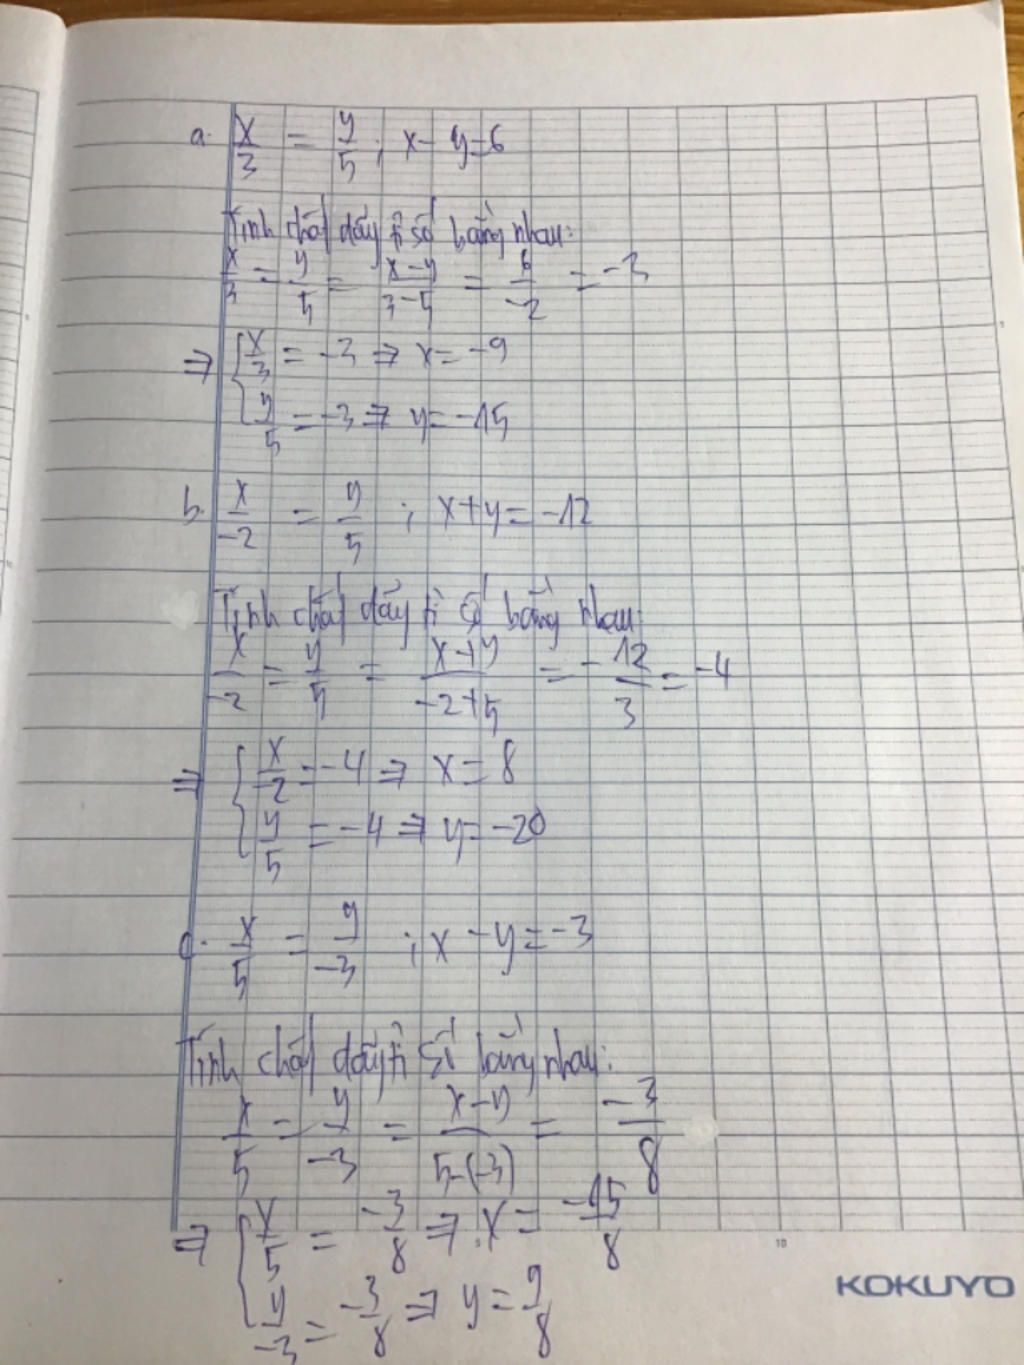 a. x/3 = y/5 ; x - y = 6
Tính chất dãy tỉ số bằng nhau:
x/3 = y/5 = (x-y)/(3-5) = 6/-2 = -3
⇒ { x/3 = -3 ⇒ x = -9
y/5 = -3 ⇒ y = -15
b. x/-2 = y/5 ; x + y = -12
Tính chất dãy tỉ số bằng nhau
x/-2 = y/5 = (x+y)/(-2+5) = -12/3 = -4
⇒ { x/-2 = -4 ⇒ x = 8
y/5 = -4 ⇒ y = -20
c. x/5 = y/-3 ; x - y = -3
Tính chất dãy tỉ số bằng nhau:
x/5 = y/-3 = (x-y)/(5-(-3)) = -3/8
⇒ { x/5 = -3/8 ⇒ x = -15/8
y/-3 = -3/8 ⇒ y = 9/8
5 10
KOKUYO